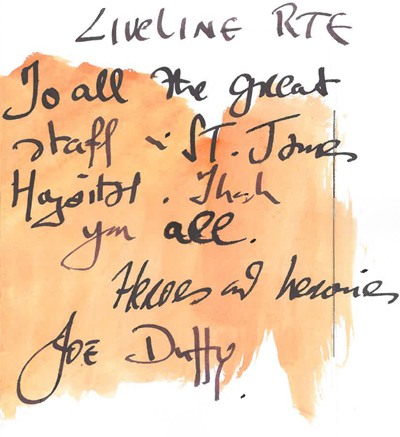 LIVELINE RTE
To all the great
staff in ST. James
Hospital. Thank
you all.
Heroes and heroines
JOE Duffy.